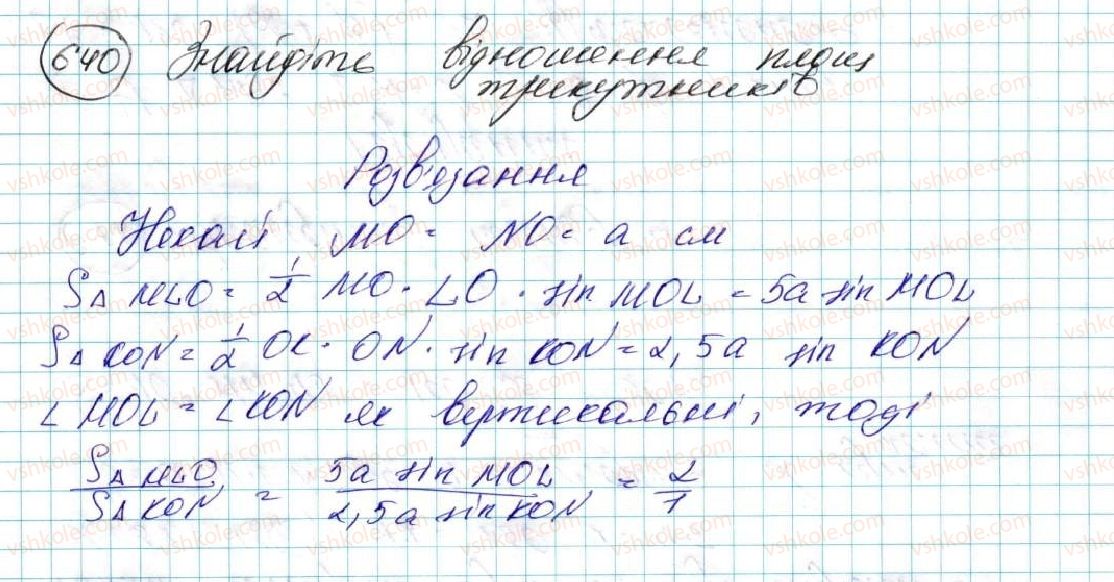 640 Знайдіть відношення площ
трикутників
Розв'язання
Нехай MO = NO = a см
S∆ MLO = 1/2 MO · LO · sin MOL = 5a sin MOL
S∆ KON = 1/2 OK · ON · sin KON = 2,5a sin KON
∠ MOL = ∠ KON як вертикальні, тоді
S∆ MLO / S∆ KON = 5a sin MOL / 2,5a sin KON = 2/1